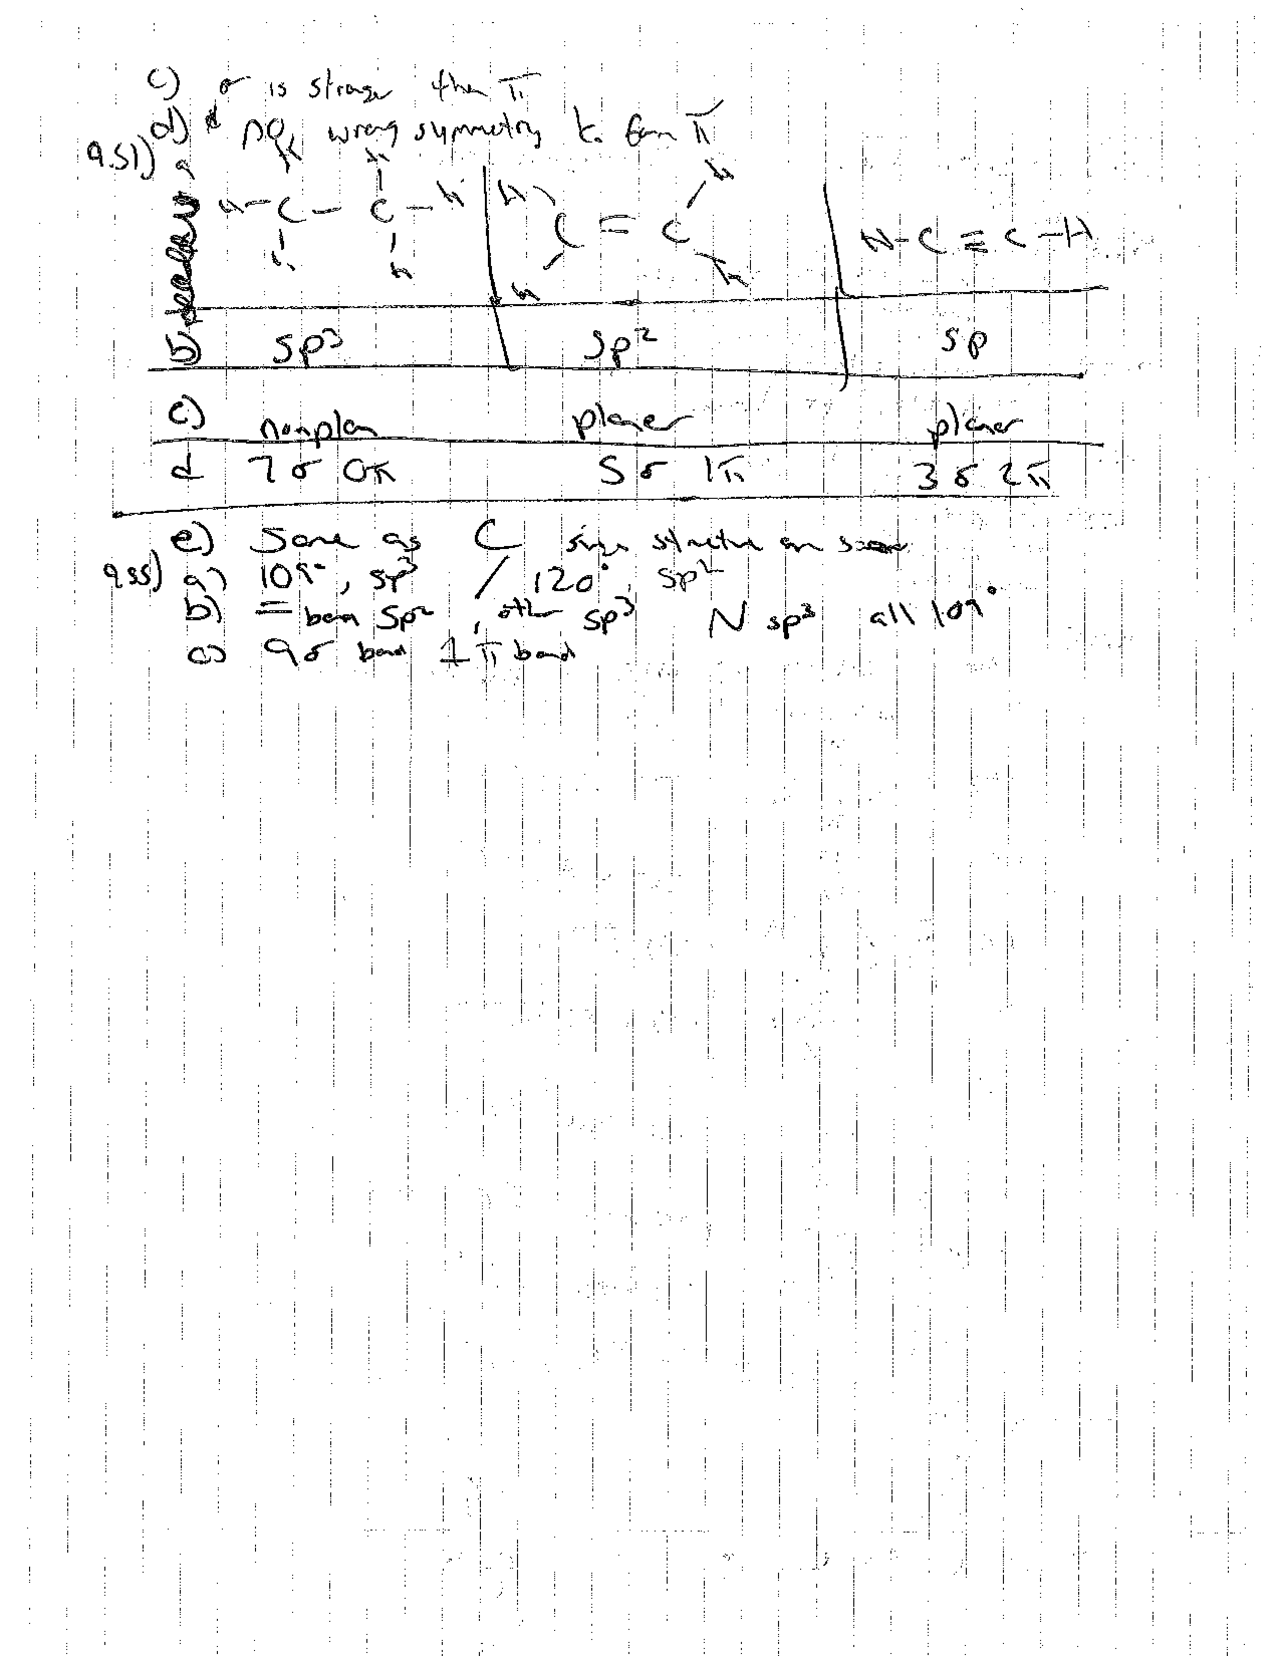 c) σ is stronger than π
d) no, wrong symmetry to form π
9.51) a
H H H H
H-C-C-H C=C H-C≡C-H
H H H H
b) sp³ sp² sp
c) nonplan planer planer
d 7σ 0π 5σ 1π 3σ 2π
e) Same as C structure are
9.55) a) 109°, sp³ / 120°, sp²
b) = bon sp², othr sp³ N sp³ all 109°
c) 9σ bond 1π bond